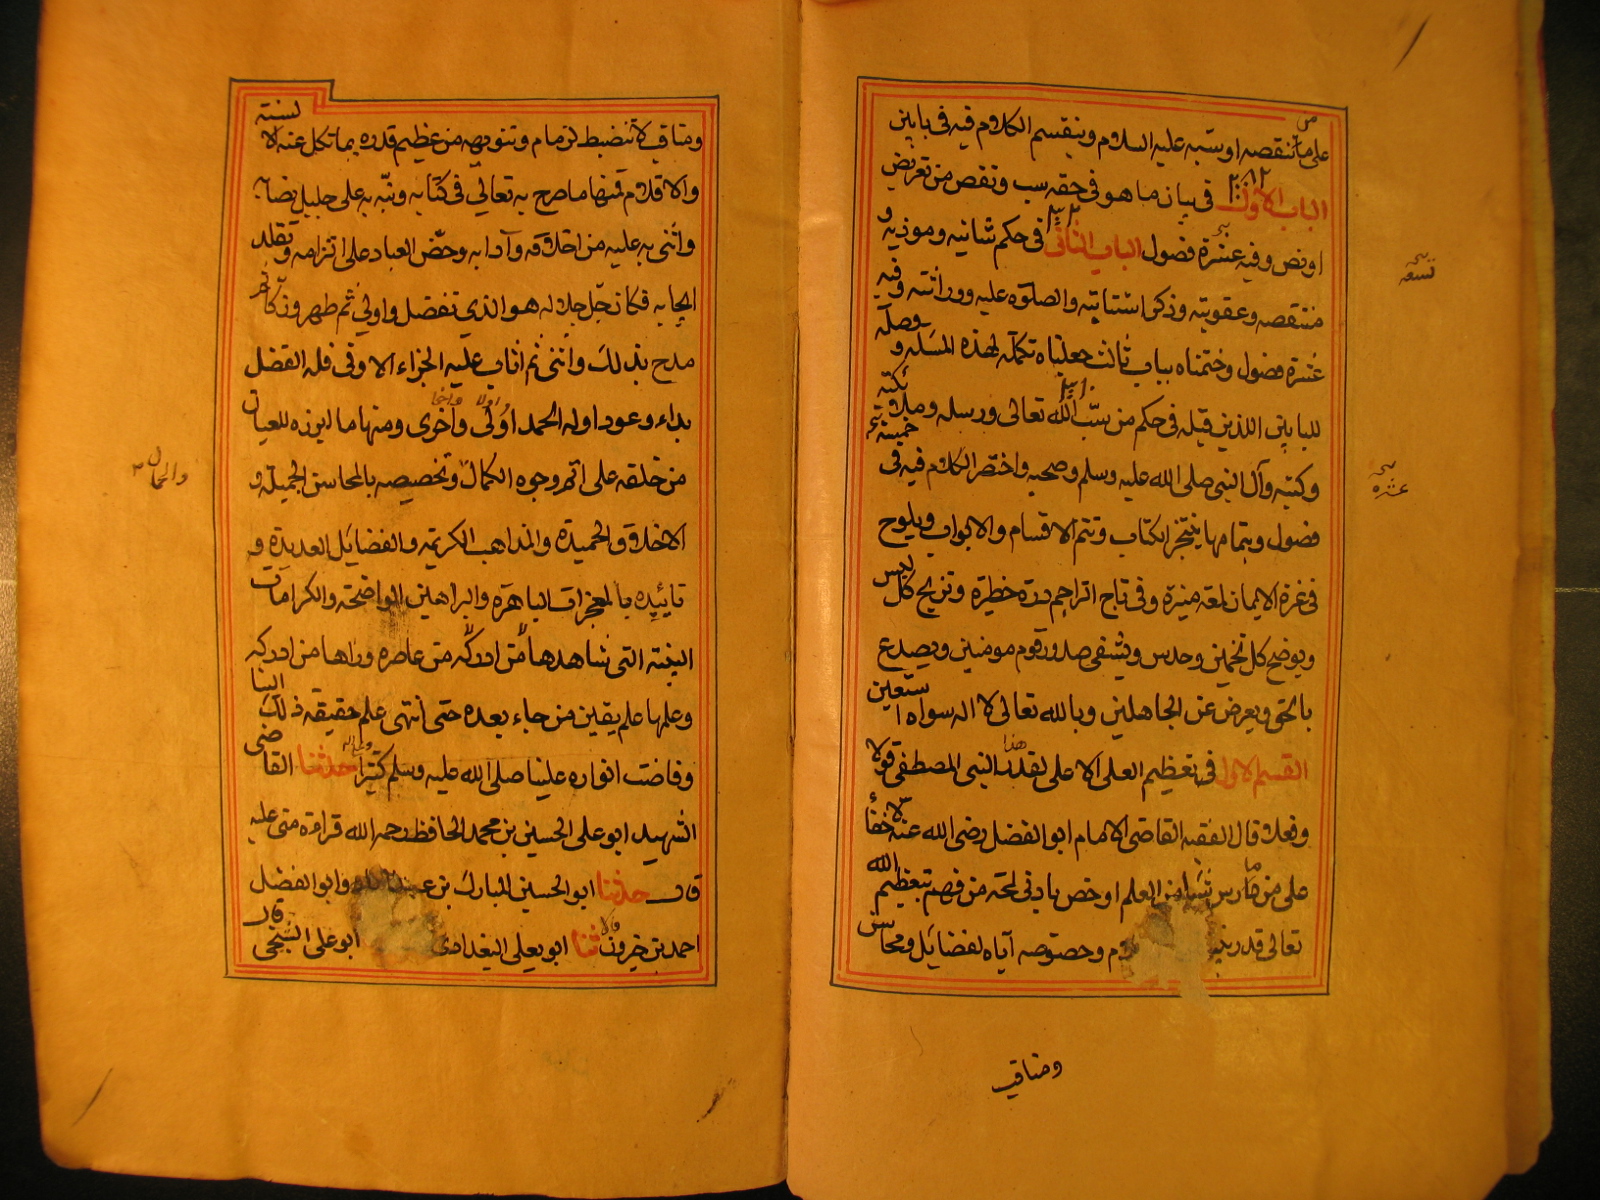 على من تنقصه اوسبه عليه السلام وينقسم الكلام فيه فى بابين
الباب الاول فى بيان ما هو فى حقه سب ونقص من تعريض
او نص وفيه عشرة فصول الباب الثانى فى حكم شانيه وموذيه و
منتقصه وعقوبته وذكر استتابته والصلوة عليه ووراثته وفيه
عشرة فصول وختمناه بباب ثالث جعلناه تكملة لهذه المسئلة و وصلة
للبابين اللذين قبله فى حكم من سب الله تعالى ورسله وملائكته
وكتبه وآل النبى صلى الله عليه وسلم وصحبه واختصر الكلام فيه فى خمسة
فصول وبتمامها ينتجز الكتاب وتتم الاقسام والابواب ويلوح
فى غرة الايمان لمعة منيرة وفى تاج التراجم درة خطيرة وتزيح كل لبس
ويوضح كل تخمين وحدس وتشفى صدور قوم مومنين ويصدع
بالحق ويعرض عن الجاهلين وبالله تعالى لا اله سواه استعين
القسم الاول فى تعظيم العلى الاعلى لقدر هذا النبى المصطفى قولا
وفعلا قال الفقيه القاضى الامام ابو الفضل رضى الله عنه لا خفأ
على من مارس شيا من العلم او خص بادنى لمحة من فهم بتعظيم الله
تعالى قدر وخصوصه اياه لفضايل ومحاسن
ومناقب
تسعه
عشره
ومناقب لا تنضبط لزمام وتنويهه من عظيم قدره بما تكل عنه الالسنة
والاقلام فمنها ما صرح به تعالى فى كتابه ونبه به على جليل نصابه
واثنى به عليه من اخلاقه وآدابه وحض العباد على التزامه وتقلد
ايجابه فكان جل جلاله هو الذى تفضل واولى ثم طهر وزكا ثم
مدح بذلك واثنى ثم اثاب عليه الجزاء الاوفى فله الفضل
بداء وعودا وله الحمد اولى واخرى ومنها ما ابرزه للعيان
من خلقه على اتم وجوه الكمال وتخصيصه بالمحاسن الجميلة و
الاخلاق الحميدة والمذاهب الكريمة والفضايل العديدة و
تاييده بالمعجزات الباهرة والبراهين الواضحة والكرامات
البينة التى شاهدها من ادركه من عاصره ورآها من ادركه
وعلمها علم يقين من جاء بعده حتى انتهى علم حقيقة ذلك الينا
وفاضت انواره علينا صلى الله عليه وسلم كثيرا حدثنا القاضى
الشهيد ابو على الحسين بن محمد الحافظ رحمه الله قراءة منى عليه
قال حدثنا ابو الحسين المبارك بن عبد وابو الفضل
احمد بن خيرون قالا ثنا ابو يعلى البغدادى قال ابو على السنجى
والجمال